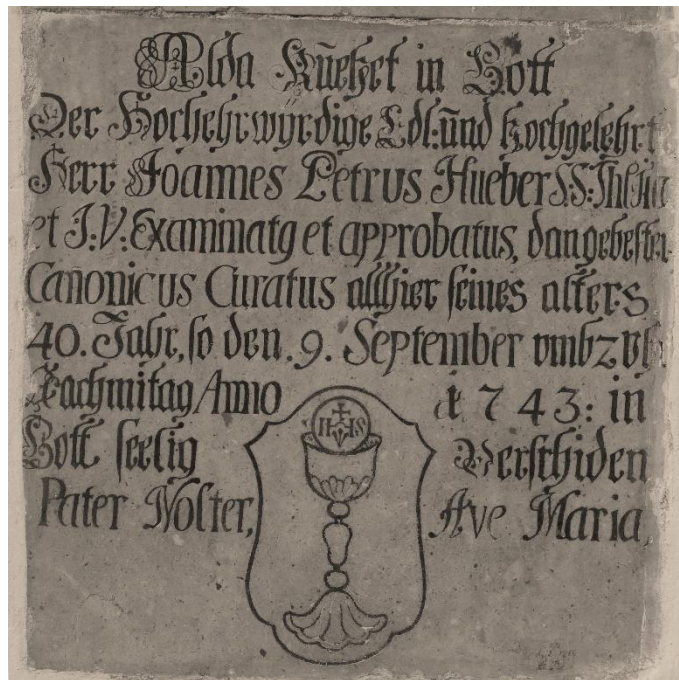 Alda Rűehet in Gott
Der Hochehrwyrdige Edl: ūnd hochgelehrt
Herr Joannes Petrus Hueber S.S: Thlgiæ
et J:V: Examinatg et approbatus, dan gewester
Canonicus Curatus allhier seines alters
40. Jahr, so den .9. September vmb 2 Vh
Nachmitag Anno 1743: in
Gott seelig Verschiden
Pater Noster, Ave Maria
IHS